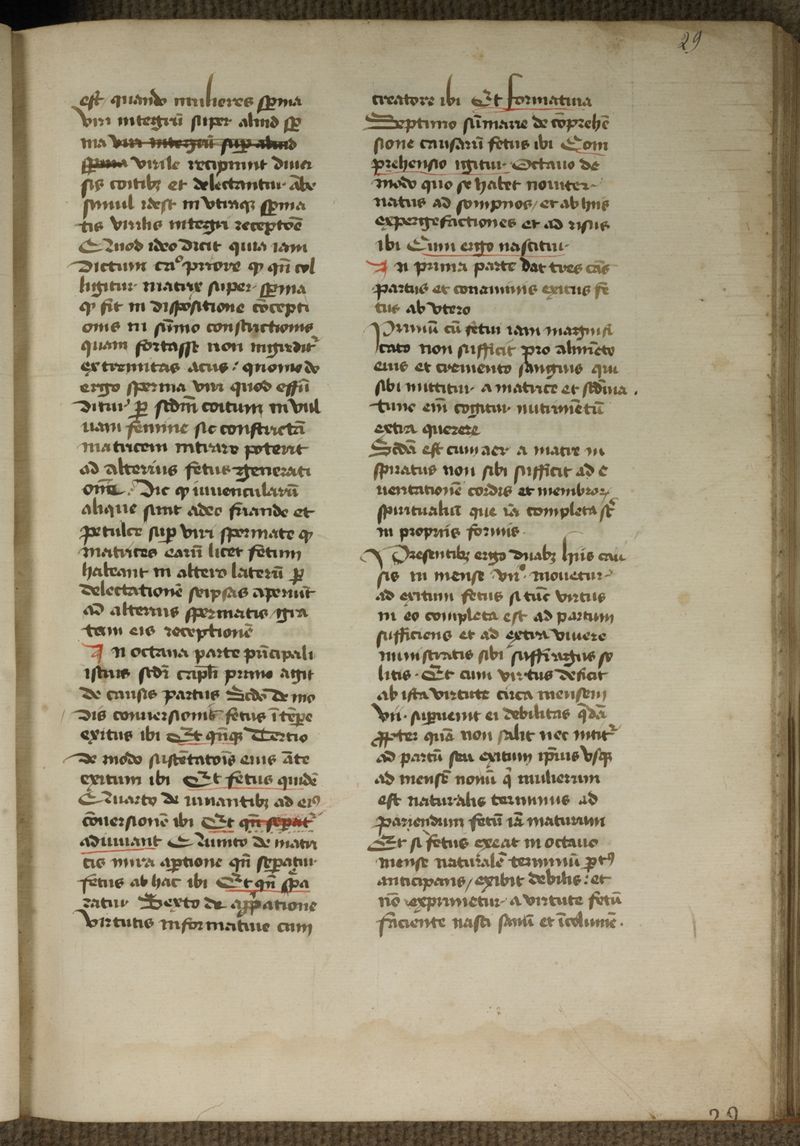 29
est quando mulieres sperma
viri integrū super aliud sp
ma viri integrū sup aliud
sperma virile recipiunt diuer
sis coitibꝫ et delectantur. Abe
simul idest in vtriusqꝫ sperma
tis virilis integri receptōe
Quod ideo dicit quia iam
dictum priore ꝙ qn̄ col
ligitur matrix super sperma
ꝙ sit in dispositione cōcepti
onis in sūmo constrictionis
quam fortasse non ingredit᷑
extremitas acus: quomodo
ergo sperma viri quod effū
ditur ꝑ scdm̄ coitum in vul
uam femine sic constrictā
matricem intrare poterit
ad alterius fetus generati
onē. Dic ꝙ iuuencularū
alique sunt adeo et
petulce sup viri spermate ꝙ
matrices earū licet fetum
habeant in altero laterū ꝑ
delectationē seipsas aperiunt
ad alterius spermatis gra
tam eis receptionē
In octaua parte pn̄cipali
istius scdi capli primo agit
de causis partus Scdo de mo
dis conuersionis fetus ī tēpe
exitus ibi Et qn̄qꝫ Tertio
de modo sustētatiōis eius āte
exitum ibi Et fetus quidē
Quarto de iuuantibꝫ ad eiꝰ
cōuersionē ibi Et qn̄ sepat᷑
adiuuant Quinto de matri
cis mira aptione qn̄ sepatur
fetus ab hac ibi Et qn̄ spa
ratur Sexto de appatione
virtutis informatiue cum
creatore ibi Et formatiua
Septimo sūmarie de cōprehē
sione causarū fetus ibi Com
prehensio igitur Octauo de
modo quo se habet nouiter
natus ad sompnos/ et ab hiis
expergefactiones et ad risus
ibi Cum ergo nascitur
In prima parte dat tres cās
partus et conaminis exitus fe
tus ab vtero
Primū cū fetui iam magnifi
cato non sufficit pro alimēto
eius et cremento sanguis qui
sibi mittitur a matrice et scdina.
tunc eīm cogitur nutrimētū
extra querere
Scdā est cum aer a matre in
spiratus non sibi sufficit ad e
uentationē cordis et membroꝝ
spiritualiū que iā completa sūt
in propriis formis
Presentibꝫ ergo duabꝫ hiis cau
sis in mense vnº. mouetur
ad exitum fetus si tūc virtus
in eo completa est ad partum
sufficiens et ad extra viuere
ministratis sibi suffragiis so
litis. Et cum virtus deficit
ab ista virtute circa mensem
vn. supuenit ei debilitas qdā
propter quā non salit nec nitit᷑
ad partū seu exitum ipius vsqꝫ
ad mensē nonū q̄ mulierum
est naturalis terminus ad
pariendum fetū iā maturum
Et si fetus exeat in octauo
mense naturalē terminū ptꝰ
anticipans/ exibit debilis: et
nō exprimetur a virtute fetū
faciente nasci sanū et īcolumē.